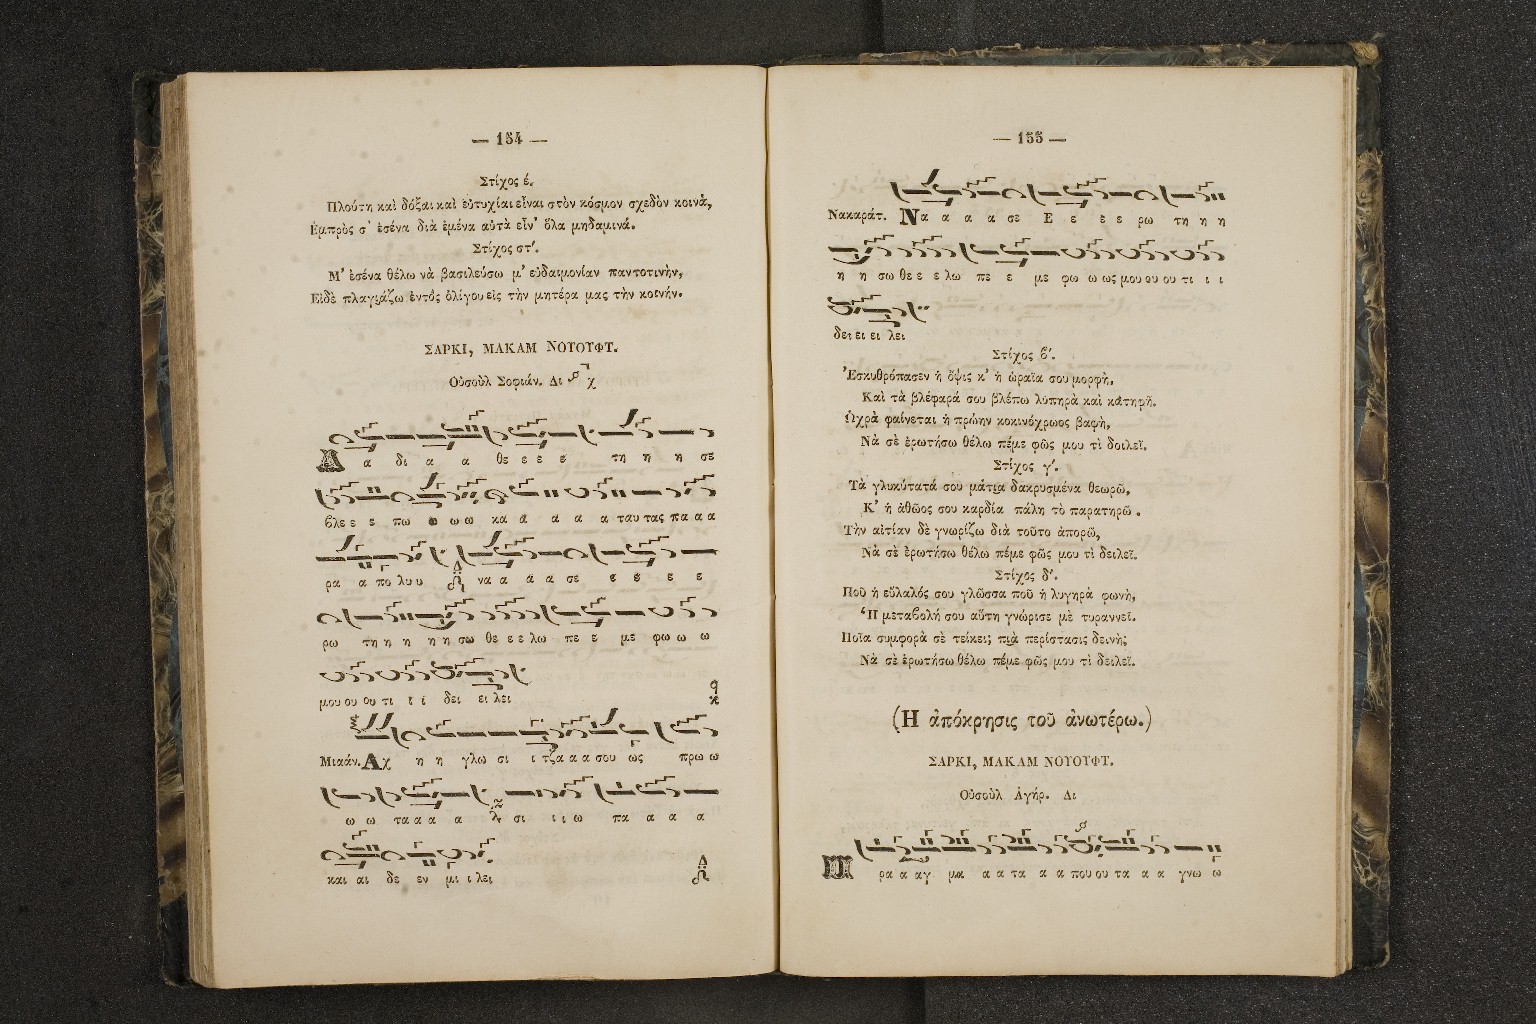 — 154 —
Στίχος έ.
Πλούτη καὶ δόξαι καὶ εὐτυχίαι εἶναι στὸν κόσμον σχεδὸν κοινὰ,
Ἐμπρὸς σ' ἐσένα διὰ ἐμένα αὐτὰ εἶν' ὅλα μηδαμινά.
Στίχος στ'.
Μ' ἐσένα θέλω νὰ βασιλεύσω μ' εὐδαιμονίαν παντοτινὴν,
Εἰδὲ πλαγιάζω ἐντὸς ὀλίγου εἰς τὴν μητέρα μας τὴν κοινήν.
ΣΑΡΚΙ, ΜΑΚΑΜ ΝΟΥΟΥΦΤ.
Οὐσοὺλ Σοφιάν. Δι χ
Α α δι α α θε ε ε ε τη η η σε
βλε ε ε πω ω ω ω κα α α α α ταυ τας πα α α
ρα α πο λυ υ να α α α σε ε ε ε ε
ρω τη η η η η σω θε ε ε λω πε ε με φω ω ω
μου ου ου τι ι ι δει ει λει
Μιαάν. Αχ η η γλω σι ι τζα α α σου ως πρω ω
ω ω τα α α α σι ι ι ω πα α α α
και αι δε εν μι ι λει
— 155 —
Νακαράτ. Να α α α σε Ε ε ε ε ρω τη η η
η η σω θε ε ε λω πε ε με φω ω ως μου ου ου τι ι ι
δει ει ει λει
Στίχος β'.
Ἐσκυθρόπασεν ἡ ὄψις κ' ἡ ὡραῖα σου μορφὴ,
Καὶ τὰ βλέφαρά σου βλέπω λυπηρὰ καὶ κατηφῆ.
Ὠχρὰ φαίνεται ἡ πρώην κοκινόχρωος βαφὴ,
Νὰ σὲ ἐρωτήσω θέλω πέμε φῶς μου τὶ δοιλεῖ.
Στίχος γ'.
Τὰ γλυκύτατά σου μάτια δακρυσμένα θεωρῶ,
Κ' ἡ ἀθῶος σου καρδία πάλη τὸ παρατηρῶ.
Τὴν αἰτίαν δὲ γνωρίζω διὰ τοῦτο ἀπορῶ,
Νὰ σὲ ἐρωτήσω θέλω πέμε φῶς μου τὶ δειλεῖ.
Στίχος δ'.
Ποῦ ἡ εὔλαλός σου γλῶσσα ποῦ ἡ λυγηρὰ φωνὴ,
Ἡ μεταβολή σου αὕτη γνώρισε μὲ τυραννεῖ.
Ποῖα συμφορὰ σὲ τείκει; πιὰ περίστασις δεινὴ;
Νὰ σὲ ἐρωτήσω θέλω πέμε φῶς μου τὶ δειλεῖ.
(Ἡ ἀπόκρησις τοῦ ἀνωτέρω.)
ΣΑΡΚΙ, ΜΑΚΑΜ ΝΟΥΟΥΦΤ.
Οὐσοὺλ Ἀγήρ. Δι
Π ρα α αγ μα α α τα α α που ου τα α α γνω ω